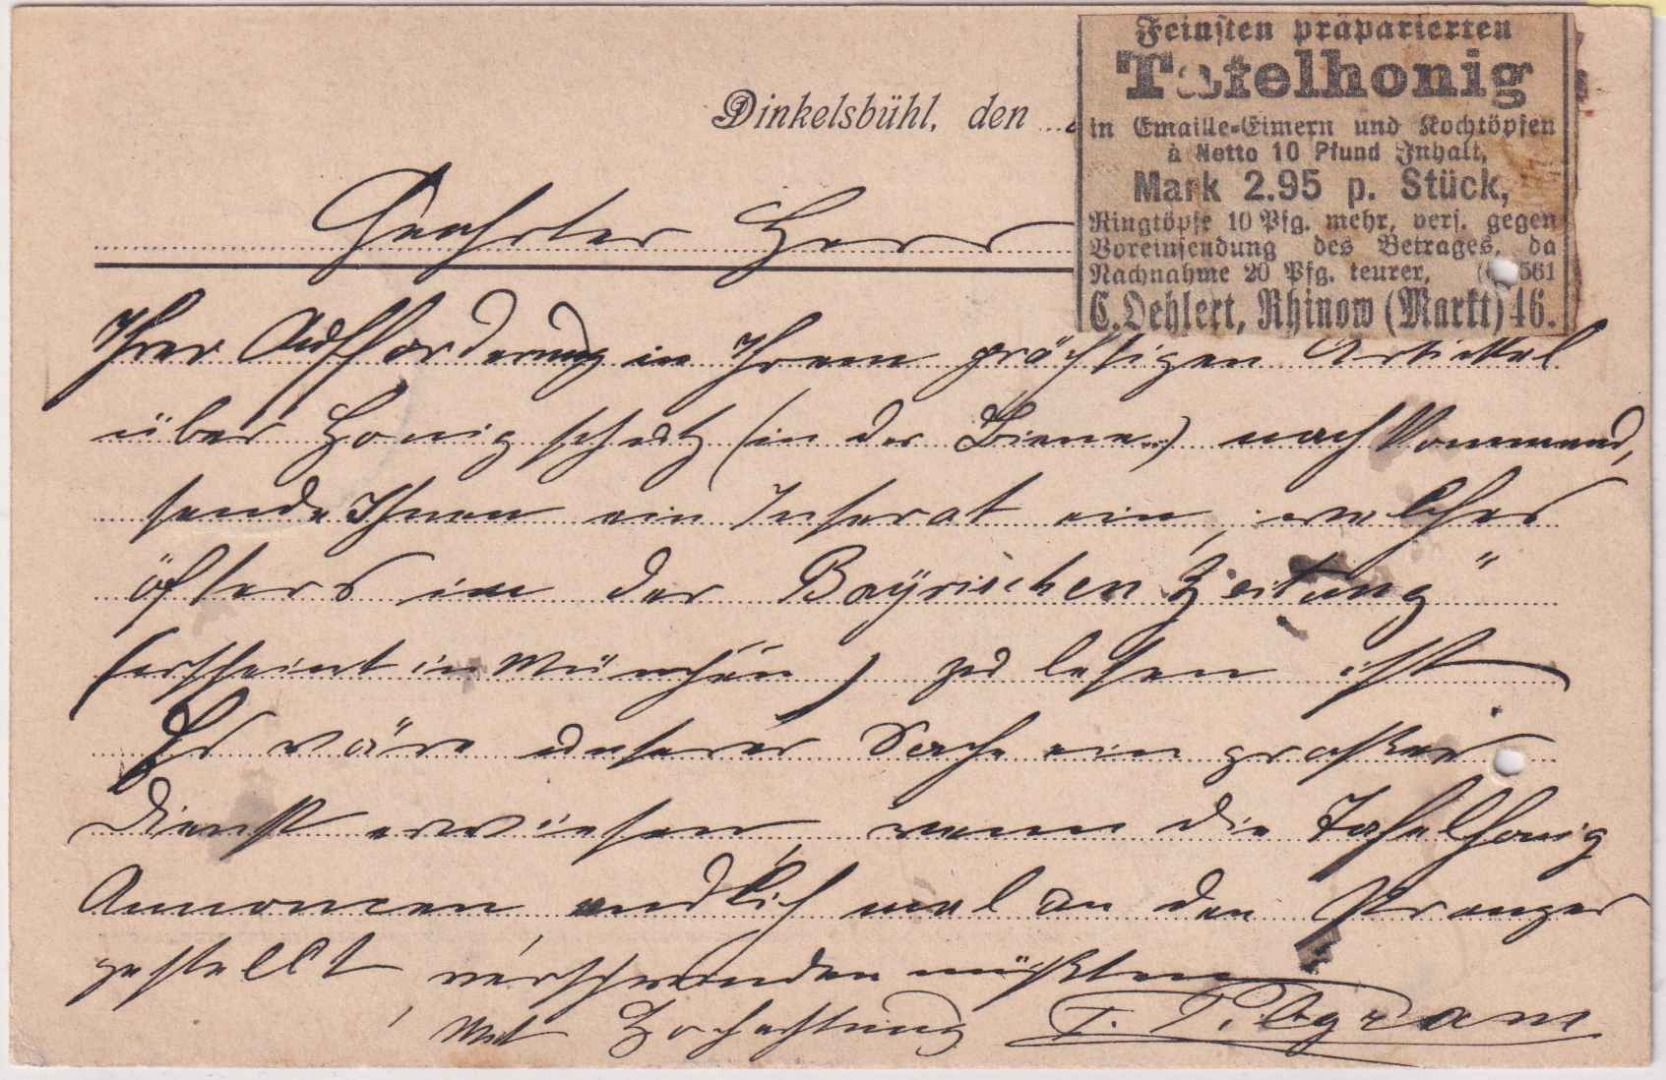 Dinkelsbühl, den
Feinsten präparierten
Tafelhonig
in Emaille-Eimern und Kochtöpfen
à Netto 10 Pfund Inhalt,
Mark 2.95 p. Stück,
Ringtöpfe 10 Pfg. mehr, vers. gegen
Voreinsendung des Betrages, da
Nachnahme 20 Pfg. teurer, 561
C. Oehlert, Rhinow (Markt) 46.
Geehrter Herr
Ihrer Aufforderung in Ihrem prächtigen Artikel
über Honigschutz (in der Biene) nachkommend,
sende Ihnen ein Inserat ein, welches
öfters in der Bayrischen Zeitung"
(erscheint in München) zu lesen ist
Es wäre unserer Sache ein großer
Dienst erwiesen, wenn die Tafelhonig
Annoncen endlich mal an den Pranger
gestellt, verschwinden müßten
Mit Hochachtung T. Pilgram